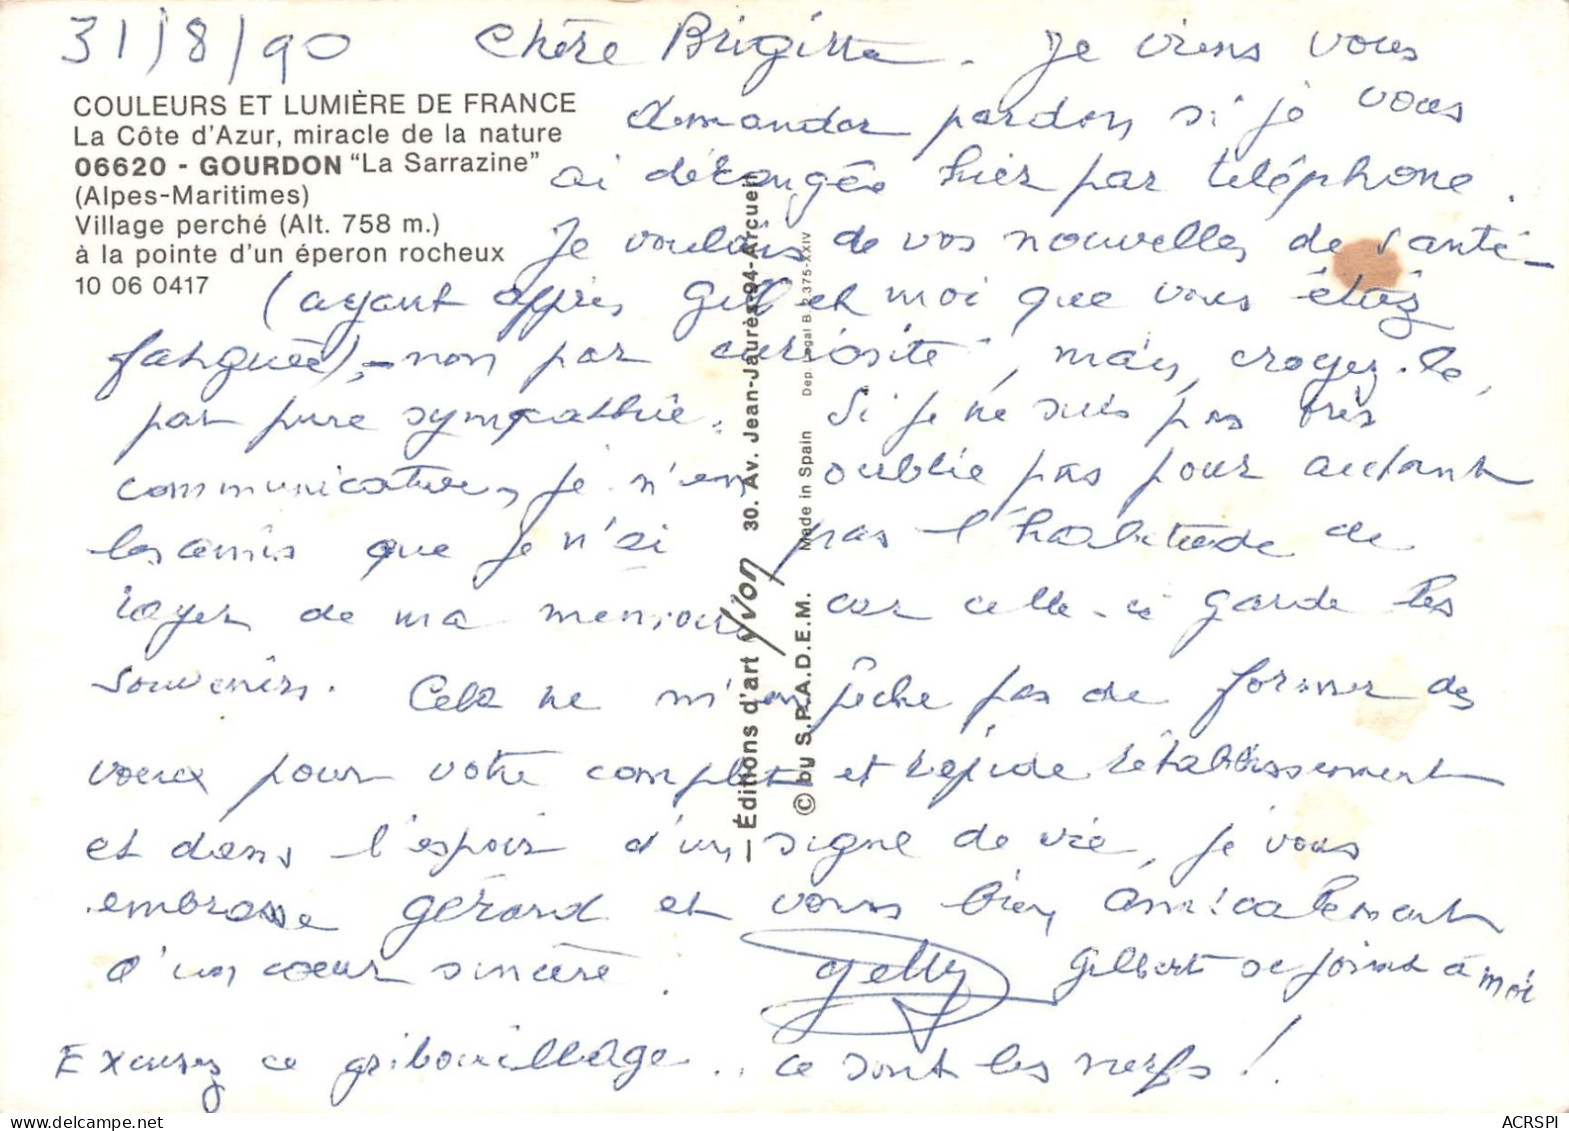 31/8/90 Chère Brigitte. Je viens vous
COULEURS ET LUMIÈRE DE FRANCE
La Côte d'Azur, miracle de la nature
06620 - GOURDON "La Sarrazine"
(Alpes-Maritimes)
Village perché (Alt. 758 m.)
à la pointe d'un éperon rocheux
10 06 0417
demander pardon si je vous
ai dérangée hier par téléphone.
Je voulais de vos nouvelles de santé -
(ayant appris Gill et moi que vous étiez
fatiguée), - non par curiosité, mais, croyez-le,
par pure sympathie. Si je ne suis pas très
communicative, je n'en oublie pas pour autant
les amis que je n'ai pas l'habitude de
rayer de ma mémoire car celle-ci garde les
souvenirs. Cela ne m'empêche pas de former des
voeux pour votre complet et rapide rétablissement
et dans l'espoir d'un signe de vie, je vous
embrasse Gérard et vous bien amicalement
d'un coeur sincère. Gelly Gilbert se joint à moi
Excusez ce gribouillage.. ce sont les nerfs !
— Éditions d'art Yvon 30. Av. Jean-Jaurès-94-Arcueil
© by S.P.A.D.E.M. Made in Spain Dep. Legal B. 2.375-XXIV
ACRSPI